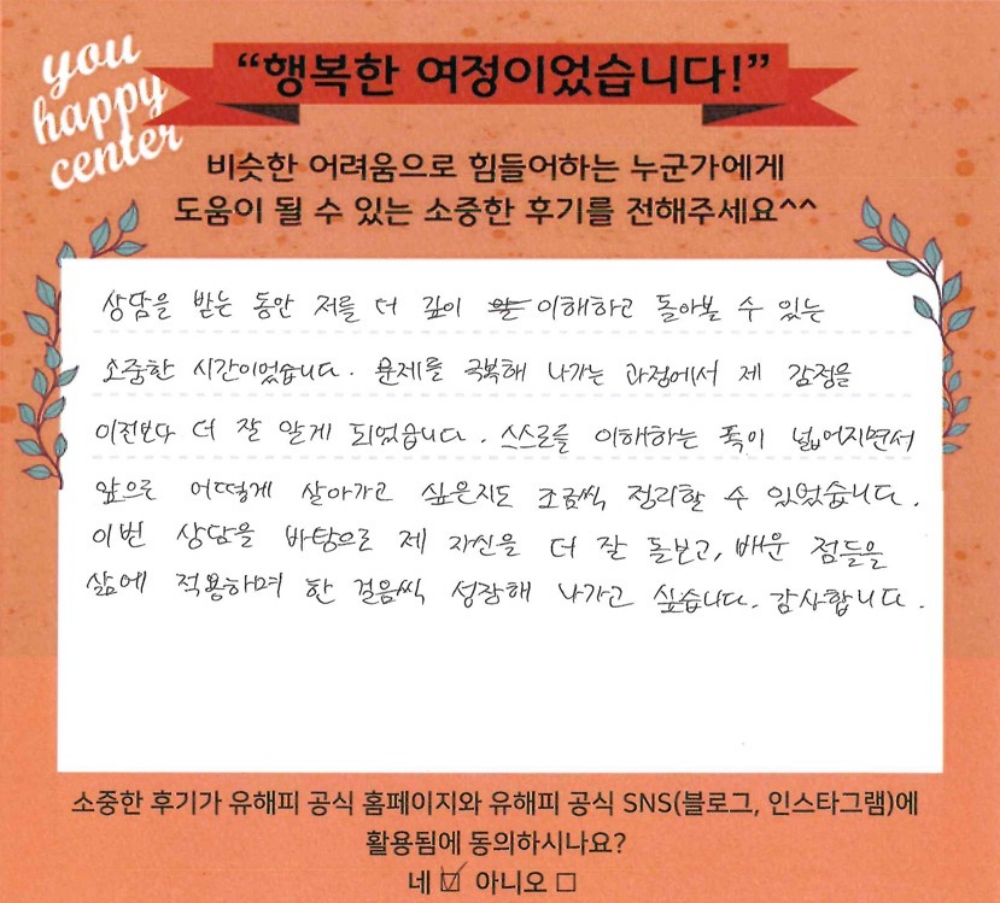 you
happy
center
“행복한 여정이었습니다!”
비슷한 어려움으로 힘들어하는 누군가에게
도움이 될 수 있는 소중한 후기를 전해주세요^^
상담을 받는 동안 저를 더 깊이 이해하고 돌아볼 수 있는
소중한 시간이었습니다. 문제를 극복해 나가는 과정에서 제 감정을
이전보다 더 잘 알게 되었습니다. 스스로를 이해하는 폭이 넓어지면서
앞으로 어떻게 살아가고 싶은지도 조금씩 정리할 수 있었습니다.
이번 상담을 바탕으로 제 자신을 더 잘 돌보고, 배운 점들을
삶에 적용하며 한 걸음씩 성장해 나가고 싶습니다. 감사합니다.
소중한 후기가 유해피 공식 홈페이지와 유해피 공식 SNS(블로그, 인스타그램)에
활용됨에 동의하시나요?
네 ☑ 아니오 □